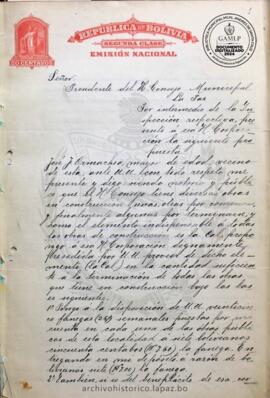 1
REPUBLICA DE BOLIVIA
SEGUNDA CLASE
EMISIÓN NACIONAL
CENTAVOS
GAMLP
DOCUMENTO
DIGITALIZADO
2024
Señor
Presidente del H. Consejo Municipal
La Paz
Por intermedio de la Ins
pección respectiva, pre
sento a esa H. Corpora
ción la siguiente pro
puesta
José J. Ormachea, mayor de edad, vecino
de esta, ante U.U. con todo respeto me
presento y digo: siendo notorio y público
que el H. Consejo tiene diversas obras
en construcción, varias otras por comenzar
y finalmente algunas por terminarse, y
como el elemento indispensable a todas
las obras de construcción es la Cal, propon
go a esa H. Corporación dignamente
presidida por U.U. proveer de dicho ele
mento (la Cal) en la cantidad suficien
te a la terminación de todas las obras
que tiene en construcción bajo las ba
ses siguientes:
1ª Pongo a la disposición de U.U. veinticin
co fanegas semanales puestas por mi
cuenta en cada una de las obras públi
cas de esta localidad a siete bolivianos
cincuenta centavos (B 7.50) la fanega. En
tregando en mi depósito a razón de bo
livianos siete (B 7.00) la fanega.
2ª También, si es del beneplácito de esa cor
archivohistorico.lapaz.bo